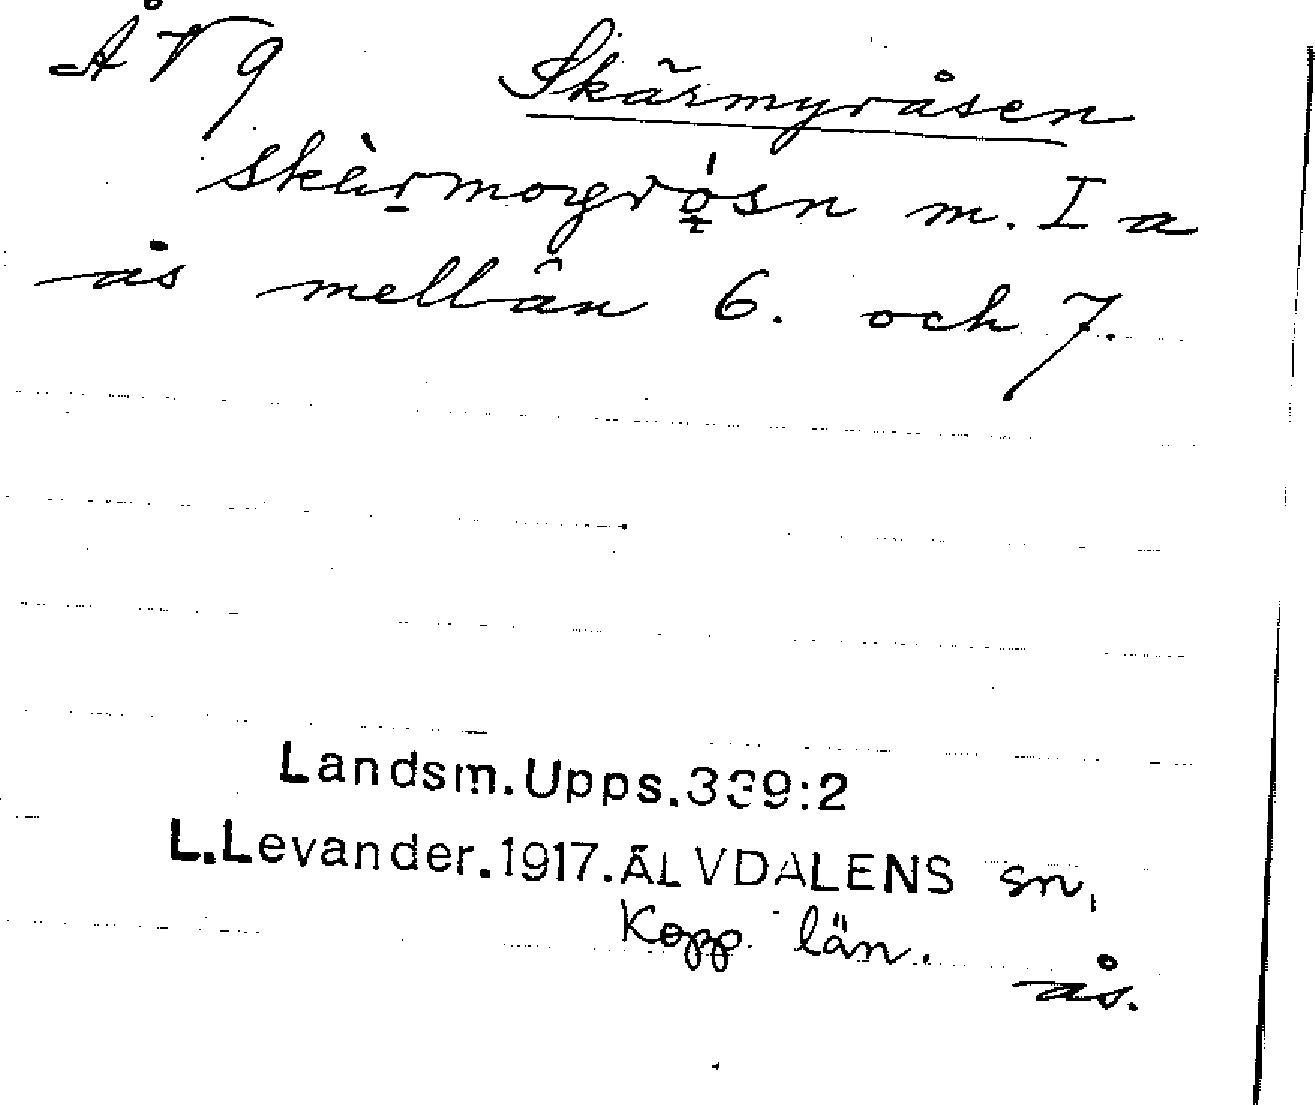 Å V 9 Skärmyråsen
skèrmogrǫ́sn m. I a
ås mellan 6. och 7.
Landsm.Upps.339:2
L.Levander.1917.ÄLVDALENS sn,
Kopp. län.
ås.